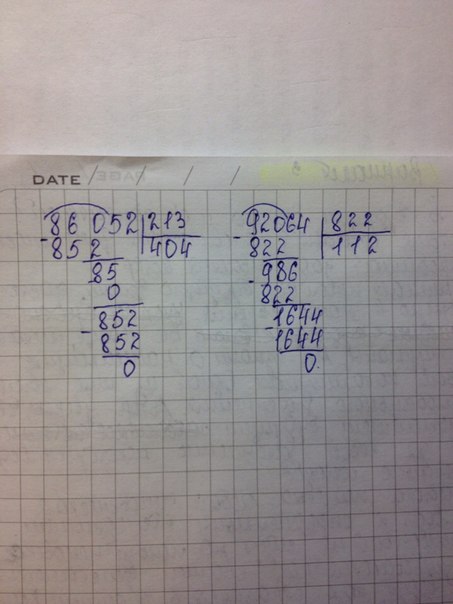 DATE / / / /
86052 213
- 852 404
85
0
- 852
852
0
92064 822
- 822 112
- 986
822
- 1644
1644
0